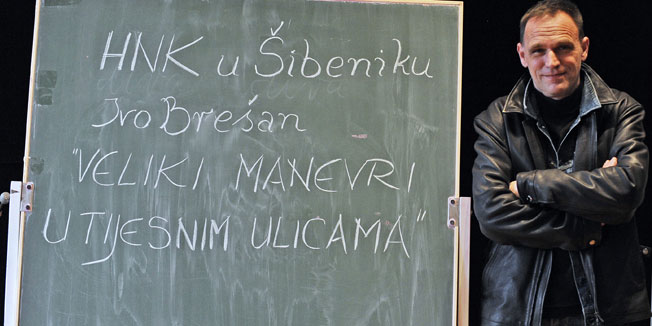 HNK u Šibeniku
Ivo Brešan
"VELIKI MANEVRI
U TIJESNIM ULICAMA"